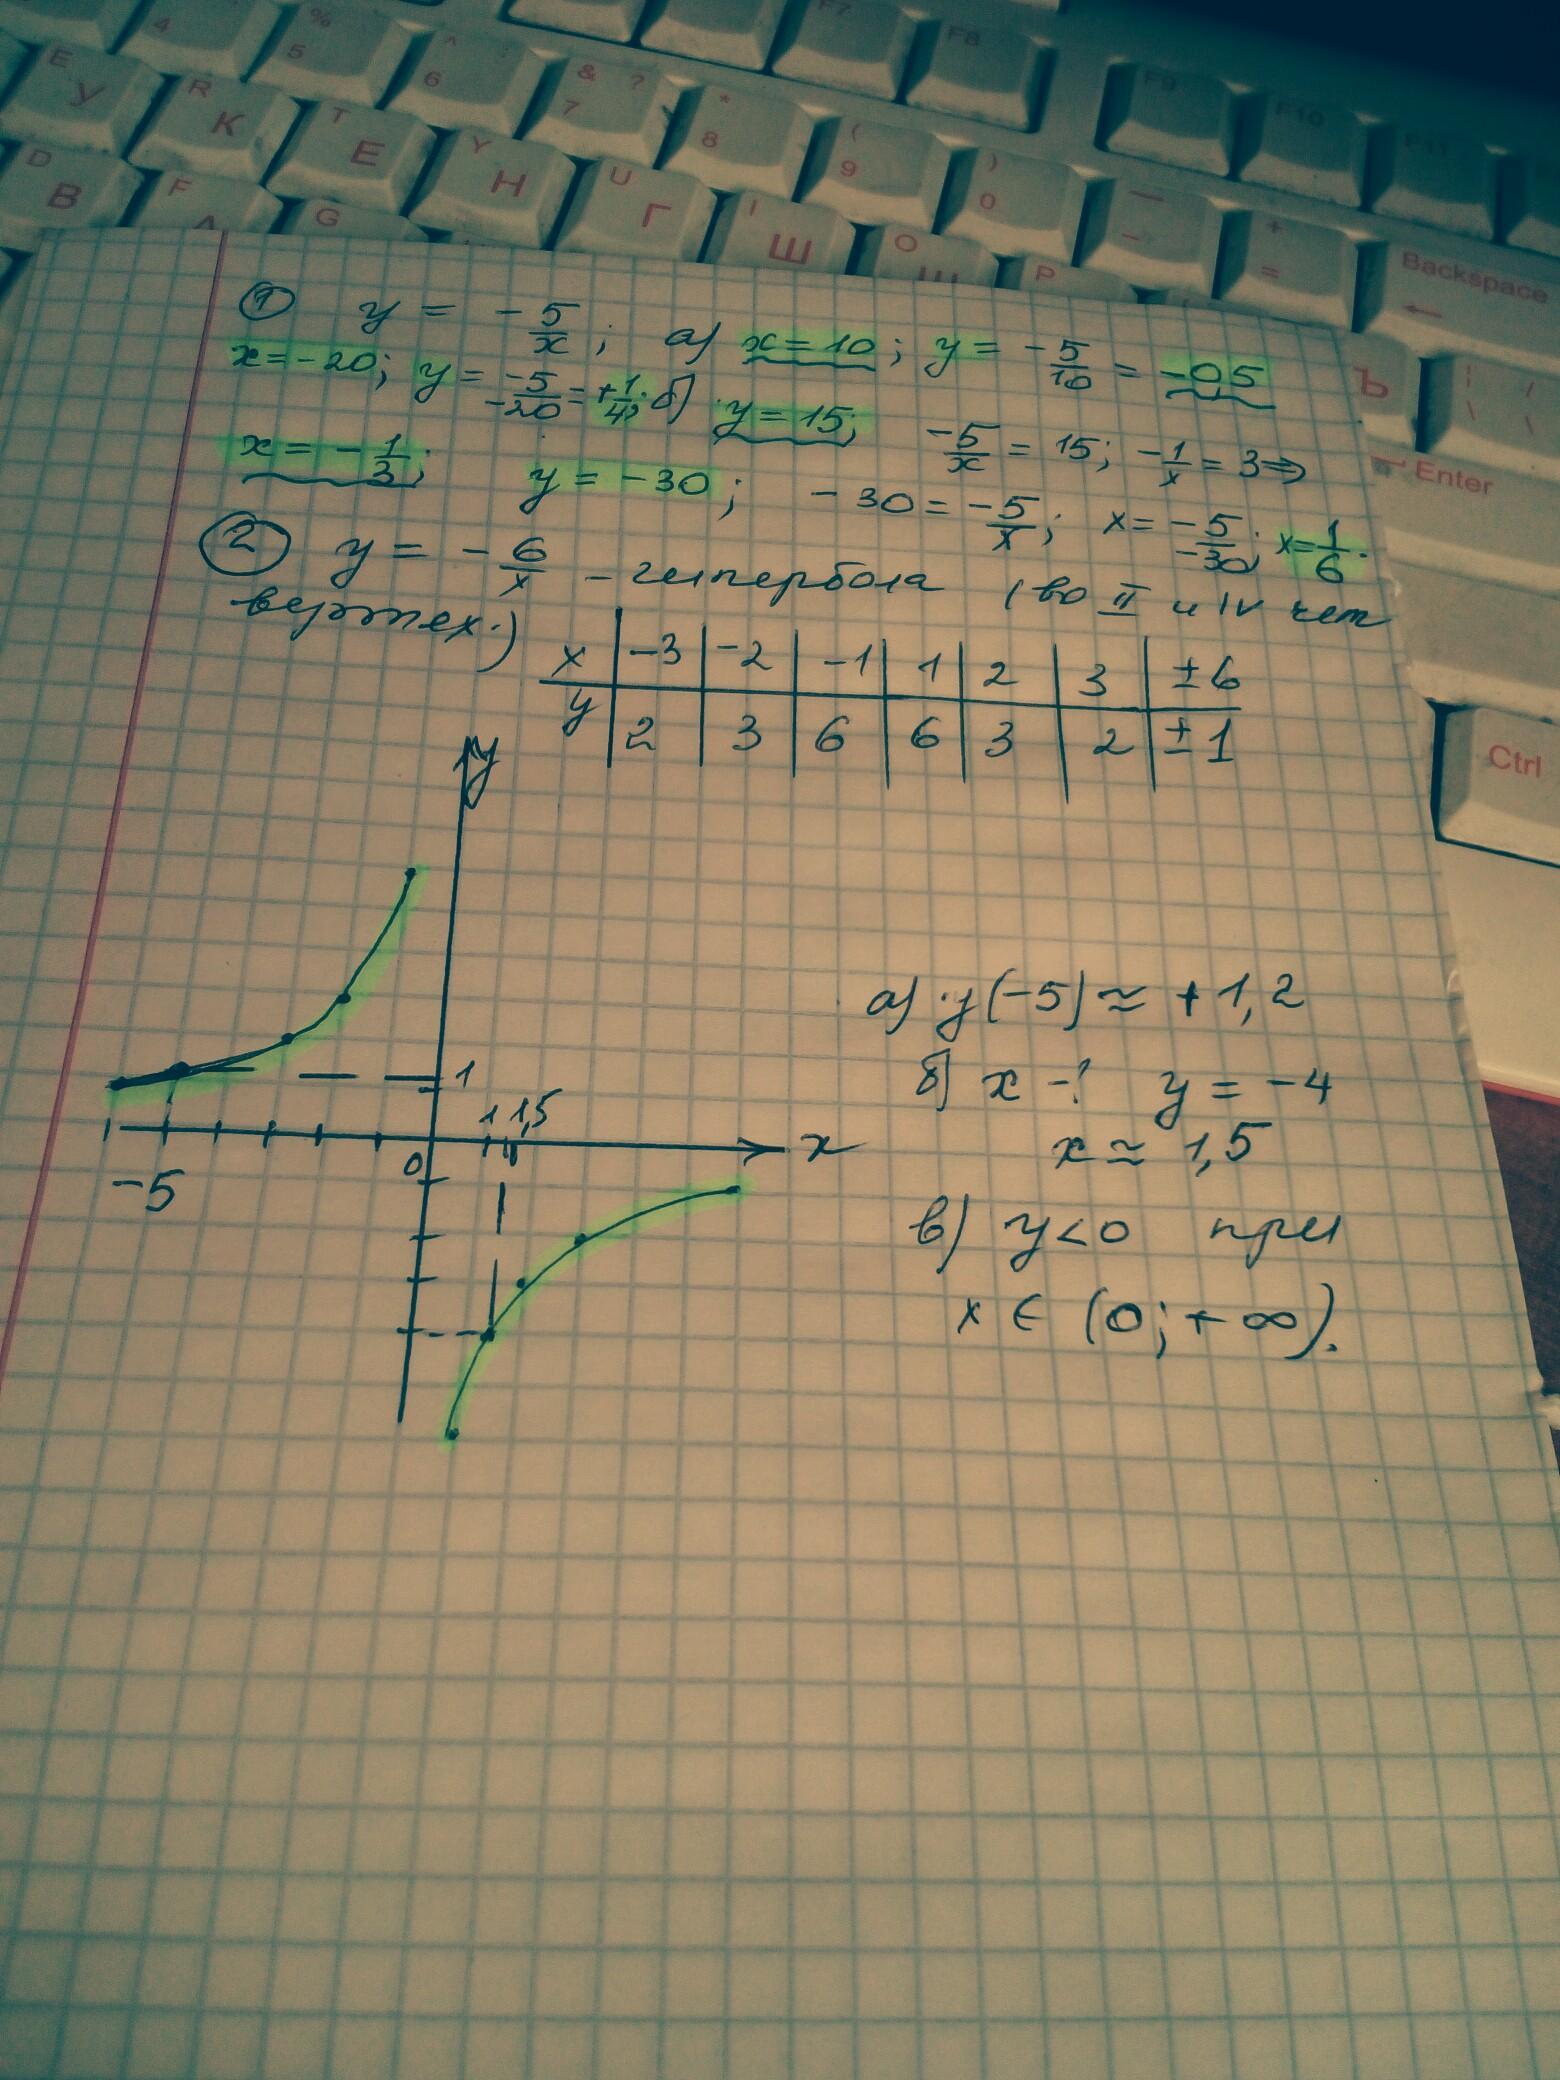 F7 F8 F9 F10 F11
4 % 5 ^ 6 & 7 ? * 8 ( 9 ) 0 — - + = Backspace ←
E У R К T Е Y Н U Г I Ш O Щ P Ъ | / \ \
D В F А G Enter
Ctrl
① y = -5/x; а) x = 10; y = -5/10 = -0,5
x = -20; y = -5/-20 = +1/4; б) y = 15; -5/x = 15; -1/x = 3 ⇒
x = -1/3; y = -30; -30 = -5/x; x = -5/-30; x = 1/6.
② y = -6/x - гипербола (во II и IV чет
вертях.)
x | -3 | -2 | -1 | 1 | 2 | 3 | ± 6
y | 2 | 3 | 6 | 6 | 3 | 2 | ± 1
y
1
1 1,5
-5 0 x
а) y(-5) ≈ + 1,2
б) x -? y = -4
x ≈ 1,5
в) y < 0 при
x ∈ (0; + ∞).